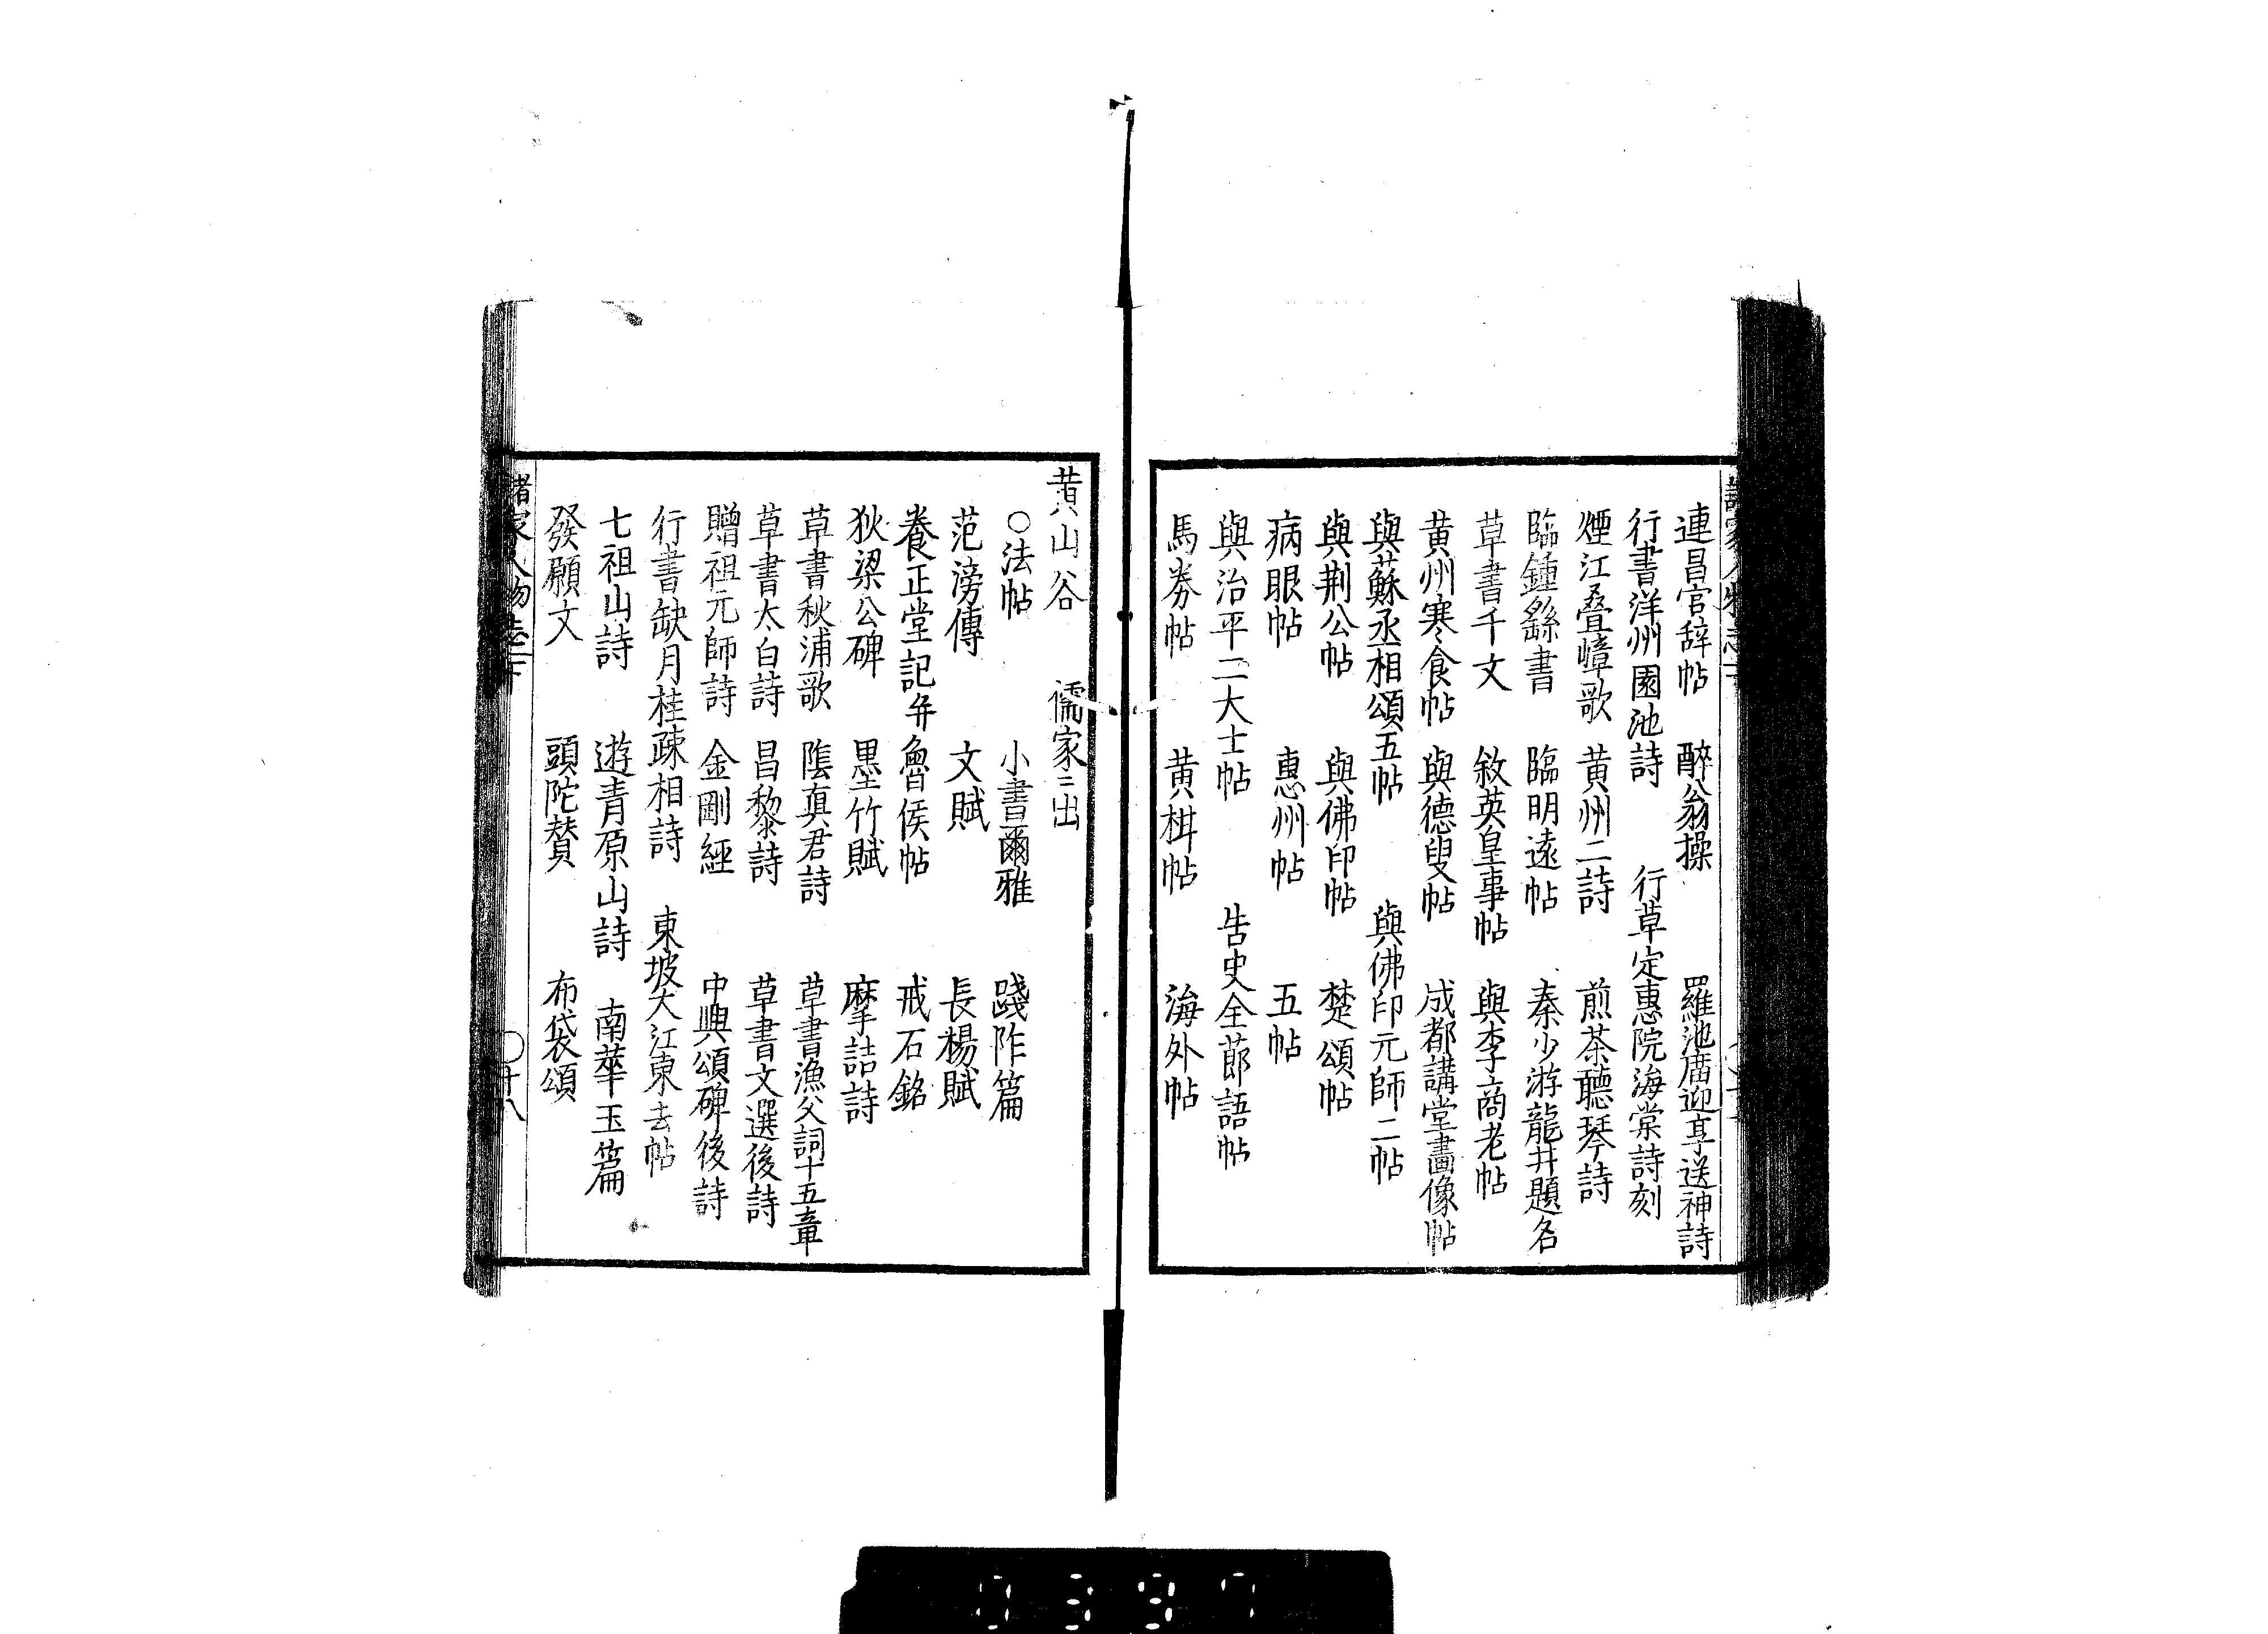 連昌宮辞帖 醉翁操 羅池廟迎享送神詩
行書洋州園池詩 行草定惠院海棠詩刻
煙江疊嶂歌 黄州二詩 煎茶聽琴詩
臨鍾繇書 臨明遠帖 秦少游龍井題名
草書千文 敘英皇事帖 與李商老帖
黄州寒食帖 與德叟帖 成都講堂畫像帖
與蘇丞相頌五帖 與佛印元師二帖
與荆公帖 與佛印帖 楚頌帖
病眼帖 惠州帖 五帖
與治平二大士帖 告史全莭語帖
馬券帖 黄楫帖 海外帖
黄山谷 儒家ニ出
○法帖 小書爾雅 踐阼篇
范滂傳 文賦 長楊賦
養正堂記并魯侯帖 戒石銘
狄梁公碑 墨竹賦 摩詰詩
草書秋浦歌 陰真君詩 草書漁父詞十五章
草書太白詩 昌黎詩 草書文選後詩
贈祖元師詩 金剛經 中興頌碑後詩
行書缺月桂疎相詩 東坡大江東去帖
七祖山詩 遊青原山詩 南華玉篇
發願文 頭陀賛 布袋頌
諸家人物志下 ○十八
0397